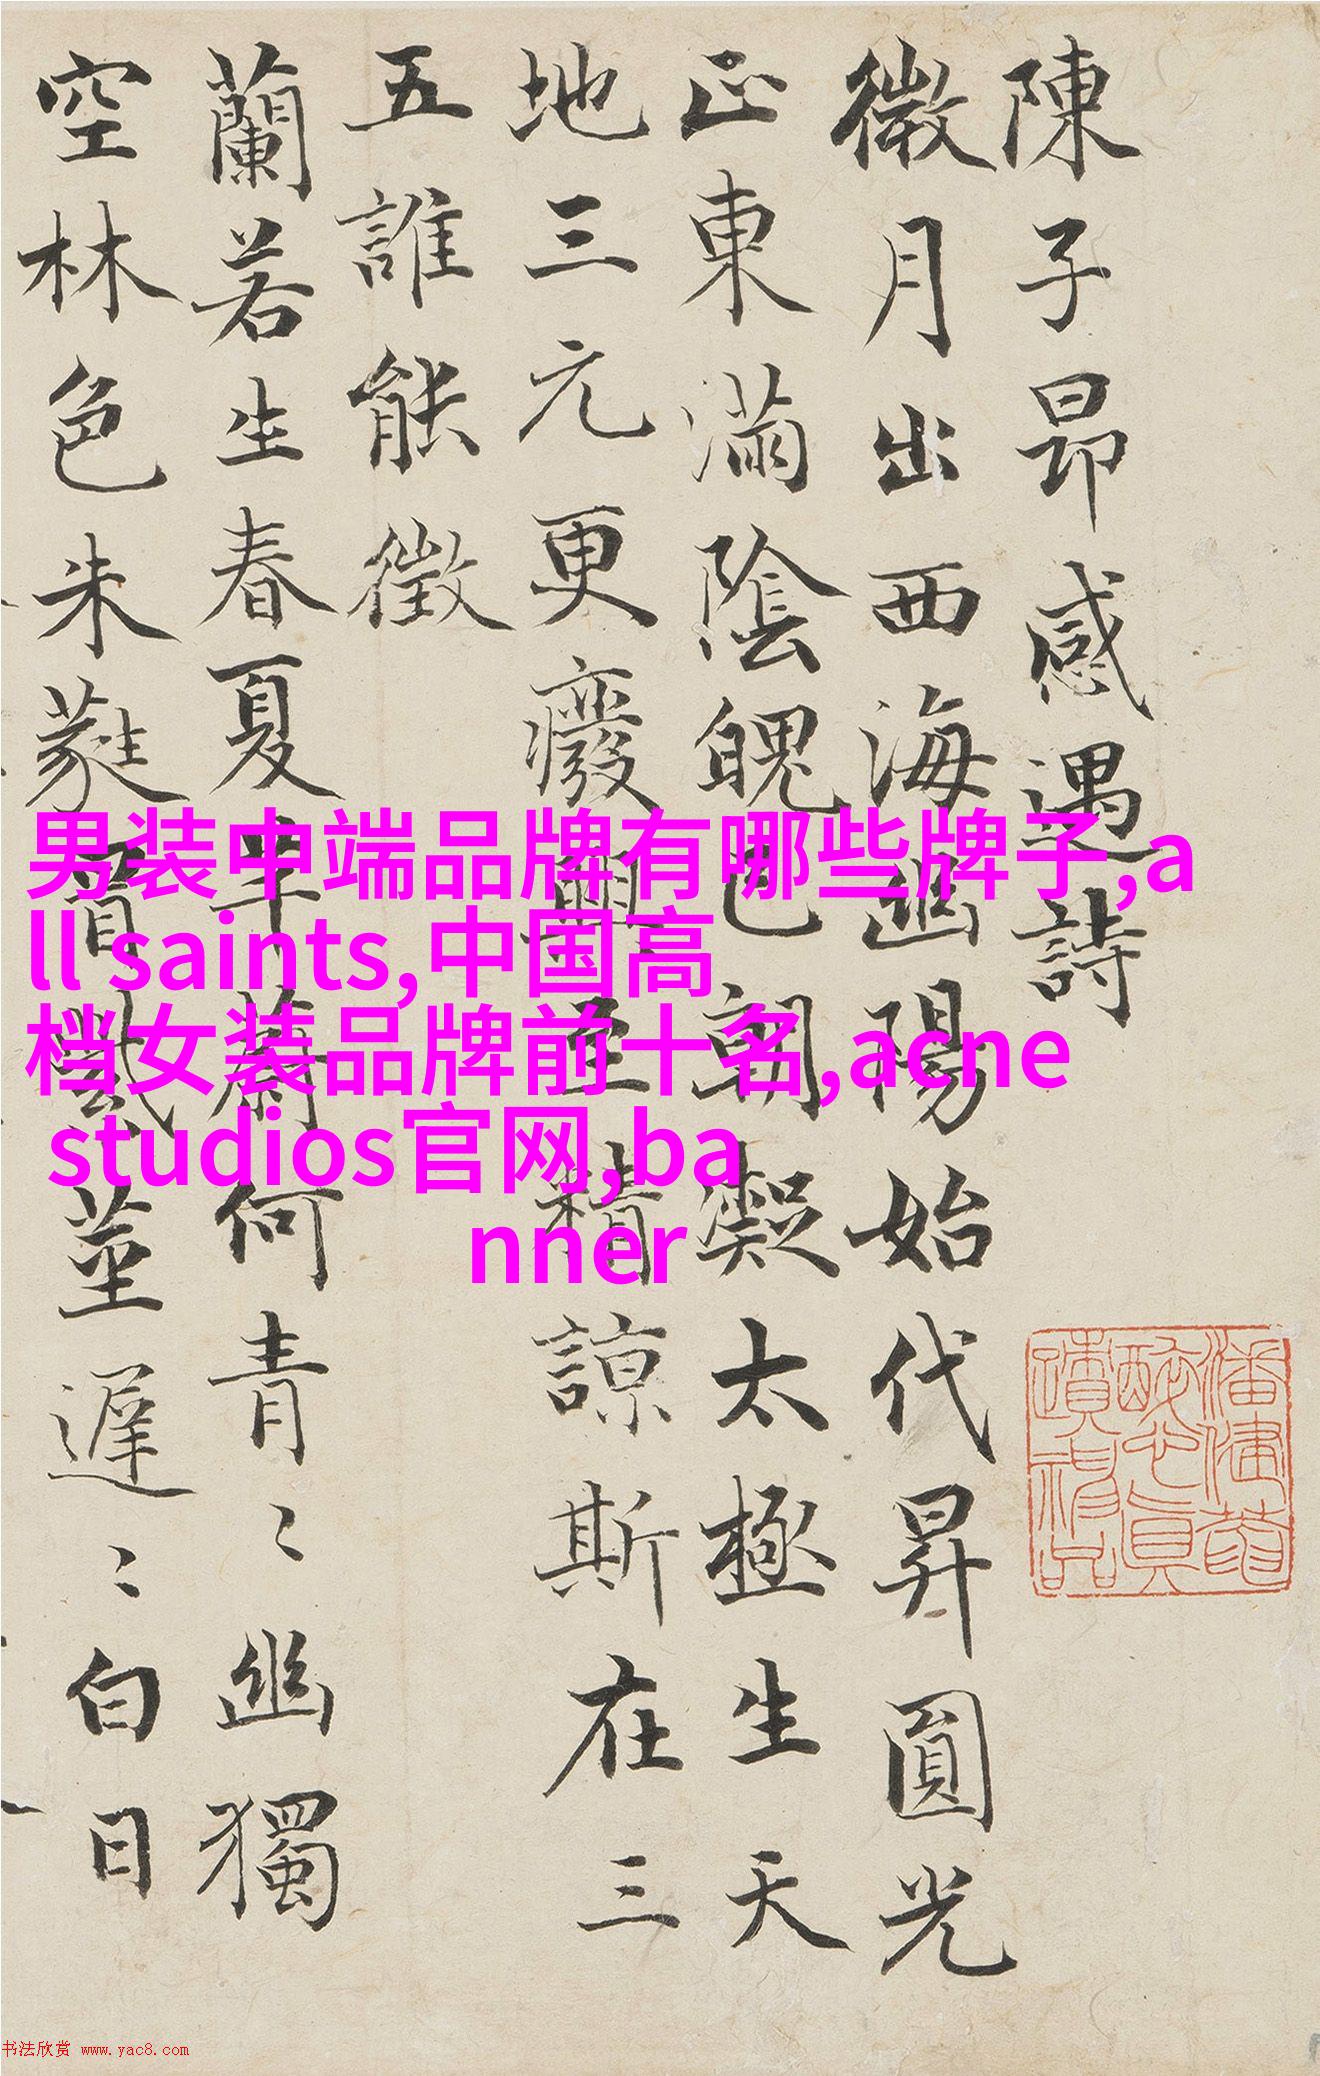 陳子昂感遇詩
微月出西海幽陽始代昇圓光
正東滿陰魄已朝凝太極生天
地三元更癈興至精諒斯在三
五誰能徵
蘭若生春夏芊蔚何青〻幽獨
空林色朱蕤冒紫莖遲〻白日
男装中端品牌有哪些牌子,a
ll saints,中国高
档女装品牌前十名,acne
studios官网,ba
nner
书法欣赏 www.yac8.com